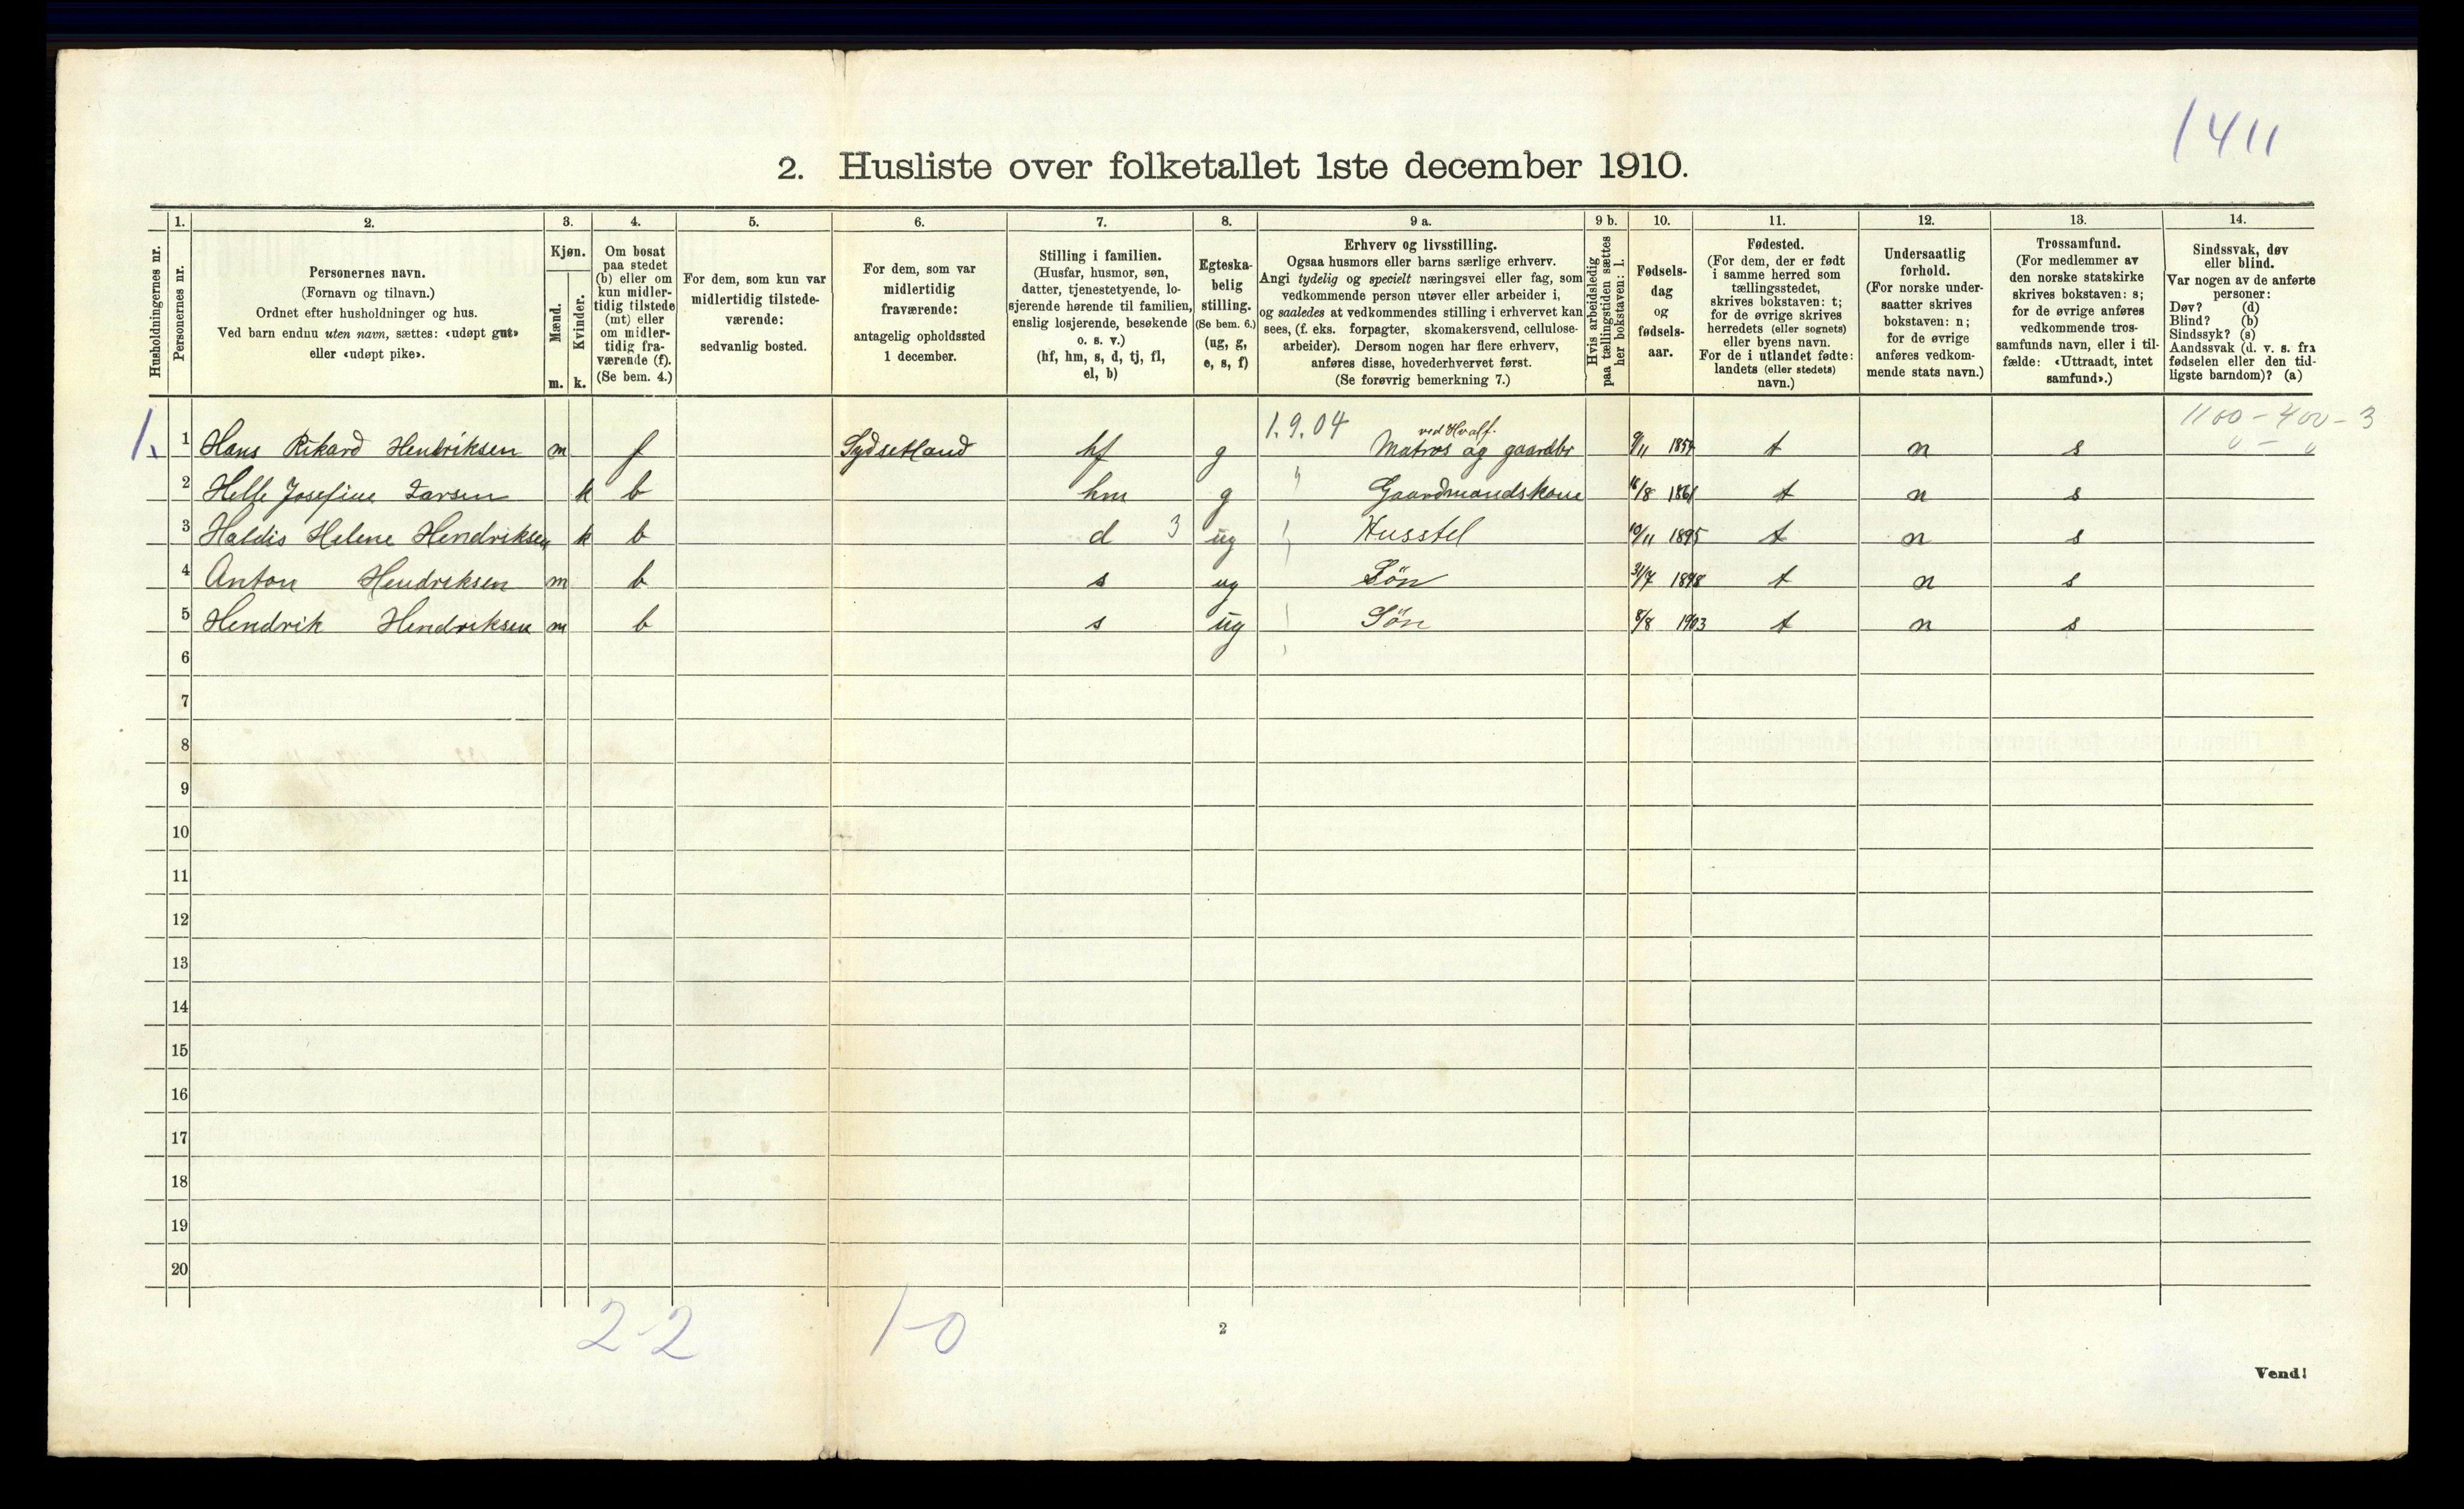 1411
2. Husliste over folketallet 1ste december 1910.
Husholdningernes nr.
1.
Personernes nr.
2.
Personernes navn.
(Fornavn og tilnavn.)
Ordnet efter husholdninger og hus.
Ved barn endnu uten navn, sættes: «udøpt gut»
eller «udøpt pike».
3.
Kjøn.
Mænd.
Kvinder.
m. k.
4.
Om bosat
paa stedet
(b) eller om
kun midler-
tidig tilstede
(mt) eller
om midler-
tidig fra-
værende (f).
(Se bem. 4.)
5.
For dem, som kun var
midlertidig tilstede-
værende:
sedvanlig bosted.
6.
For dem, som var
midlertidig
fraværende:
antagelig opholdssted
1 december.
7.
Stilling i familien.
(Husfar, husmor, søn,
datter, tjenestetyende, lo-
sjerende hørende til familien,
enslig losjerende, besøkende
o. s. v.)
(hf, hm, s, d, tj, fl,
el, b)
8.
Egteska-
belig
stilling.
(Se bem. 6.)
(ug, g,
e, s, f)
9 a.
Erhverv og livsstilling.
Ogsaa husmors eller barns særlige erhverv.
Angi tydelig og specielt næringsvei eller fag, som
vedkommende person utøver eller arbeider i,
og saaledes at vedkommendes stilling i erhvervet kan
sees, (f. eks. forpagter, skomakersvend, cellulose-
arbeider). Dersom nogen har flere erhverv,
anføres disse, hovederhvervet først.
(Se forøvrig bemerkning 7.)
9 b.
Hvis arbeidsledig
paa tællingstiden sættes
her bokstaven: l.
10.
Fødsels-
dag
og
fødsels-
aar.
11.
Fødested.
(For dem, der er født
i samme herred som
tællingsstedet,
skrives bokstaven: t;
for de øvrige skrives
herredets (eller sognets)
eller byens navn.
For de i utlandet fødte:
landets (eller stedets)
navn.)
12.
Undersaatlig
forhold.
(For norske under-
saatter skrives
bokstaven: n;
for de øvrige
anføres vedkom-
mende stats navn.)
13.
Trossamfund.
(For medlemmer av
den norske statskirke
skrives bokstaven: s;
for de øvrige anføres
vedkommende tros-
samfunds navn, eller i til-
fælde: «Uttraadt, intet
samfund».)
14.
Sindssvak, døv
eller blind.
Var nogen av de anførte
personer:
Døv? (d)
Blind? (b)
Sindssyk? (s)
Aandssvak (d. v. s. fra
fødselen eller den tid-
ligste barndom)? (a)
1.9.04 ved Hvalf. 1100-400-3
1. 1 Hans Rikard Hendriksen m f Sydsetland hf g Matros og gaardbr 9/11 t n s
2 Helle Josefine Larsen k b hm g Gaardmandskone 16/8 t n s
3 Haldis Helene Hendriksen k b d 3 ug Husstel 10/11 1895 t n s
4 Anton Hendriksen m b s ug Søn 31/7 1898 t n s
5 Hendrik Hendriksen m b s ug Søn 8/8 1903 t n s
6
7
8
9
10
11
12
13
14
15
16
17
18
19
20
2-2 1-0
2
Vend!